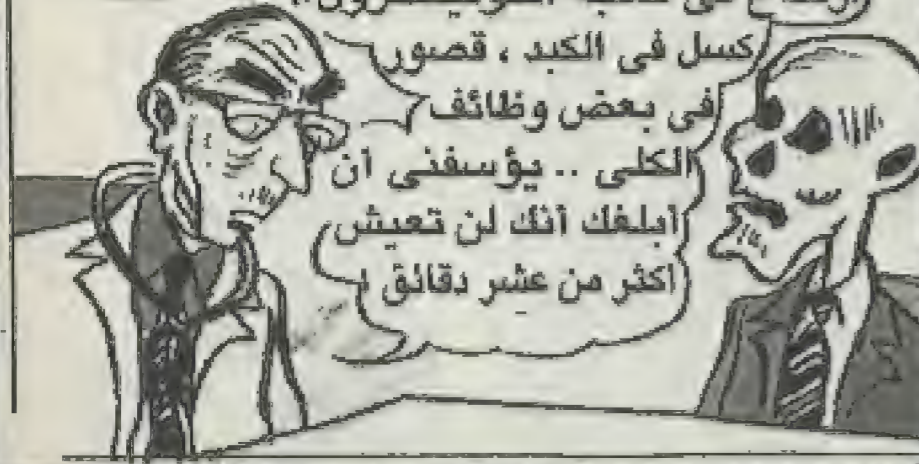 كسل فى الكبد ، قصور
فى بعض وظائف
الكلى .. يؤسفنى أن
أبلغك أنك لن تعيش
أكثر من عشر دقائق !